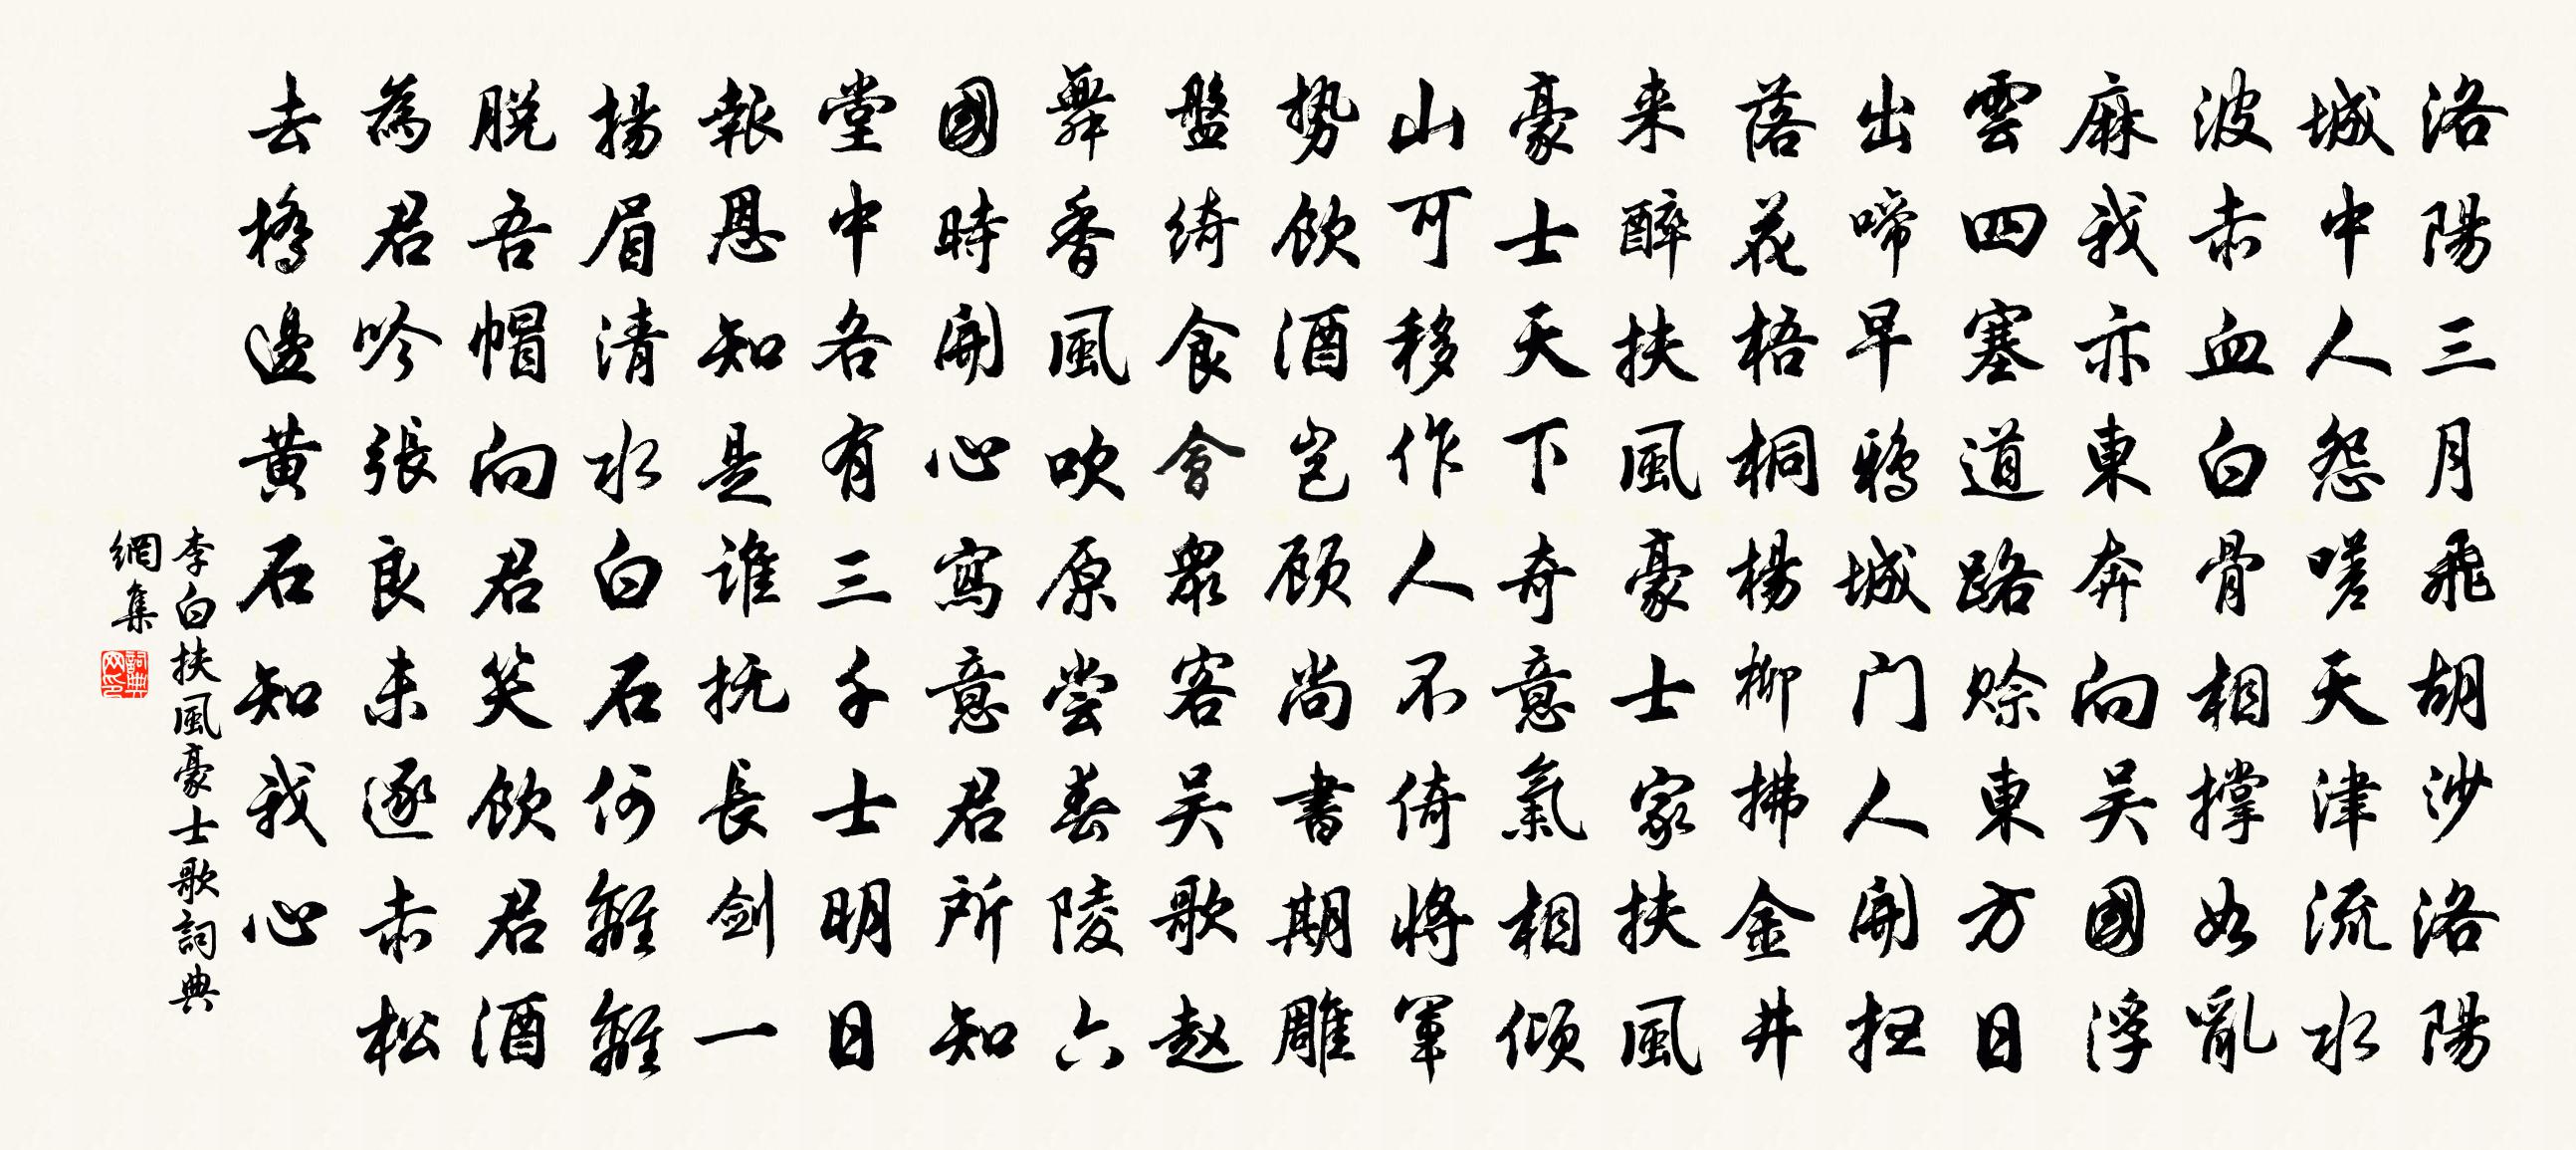 洛陽三月飛胡沙洛陽
城中人怨嗟天津流水
波赤血白骨相撐如亂
麻我亦東奔向吴國浮
雲四塞道路赊東方日
出啼早鴉城门人開扫
落花梧桐楊柳拂金井
来醉扶風豪士家扶風
豪士天下奇意氣相倾
山可移作人不倚將軍
势飲酒岂顾尚書期雕
盤绮食會眾客吴歌赵
舞香風吹原尝春陵六
國時開心寫意君所知
堂中各有三千士明日
報恩知是谁抚長剑一
揚眉清水白石何離離
脱吾帽向君笑飲君酒
為君吟張良未逐赤松
去橋邊黄石知我心
李白扶風豪士歌詞典
網集
詞典网印